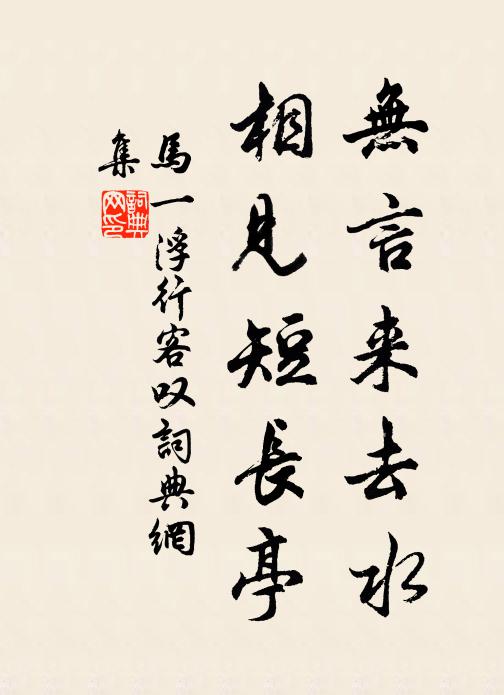 無言来去水
相見短長亭
馬一浮行客叹詞典網
集
詞典网印